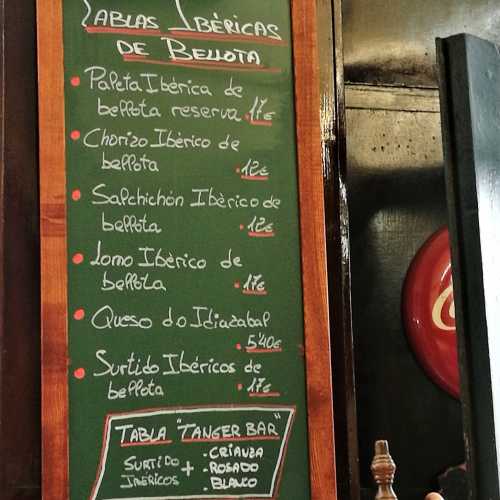 TABLAS IBÉRICAS
DE BELLOTA
Paleta Ibérica de
bellota reserva 17€
Chorizo Ibérico de
bellota
12€
Salchichón Ibérico de
bellota
12€
Lomo Ibérico de
bellota
17€
Queso do Idiazabal
5'40€
Surtido Ibéricos de
bellota
17€
TABLA "TANGER BAR"
SURTIDO + IBÉRICOS
- CRIANZA
- ROSADO
- BLANCO